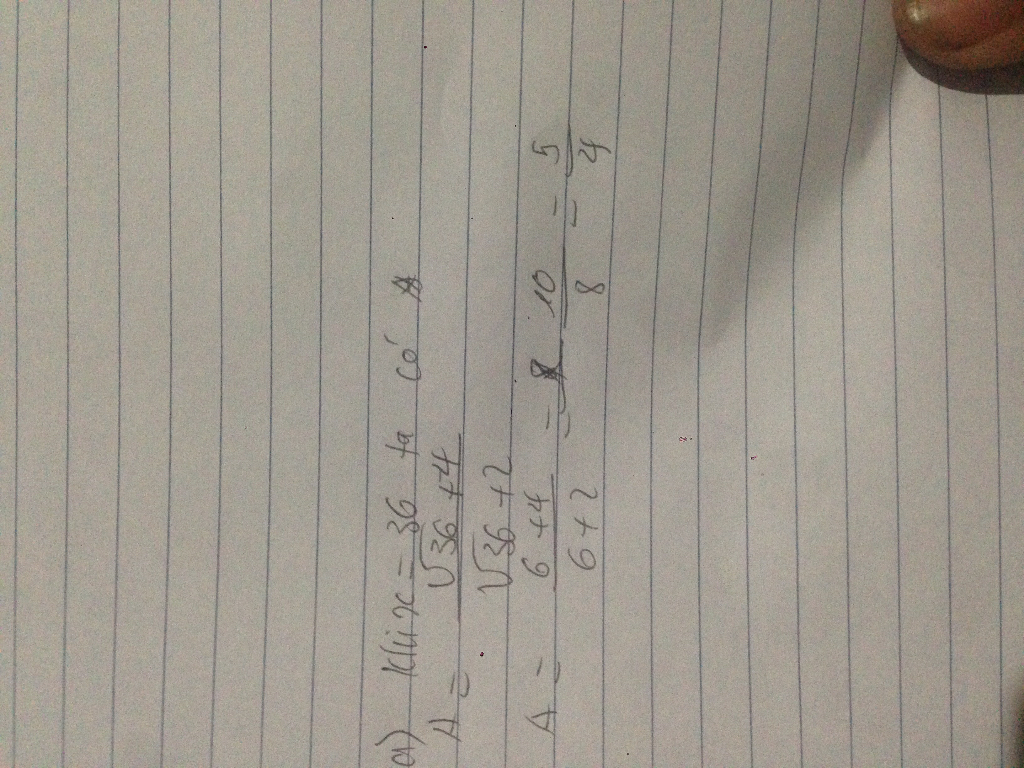 a) Khi x = 36 ta có
A = √36 + 4 / √36 + 2
A = 6 + 4 / 6 + 2 = 10 / 8 = 5 / 4